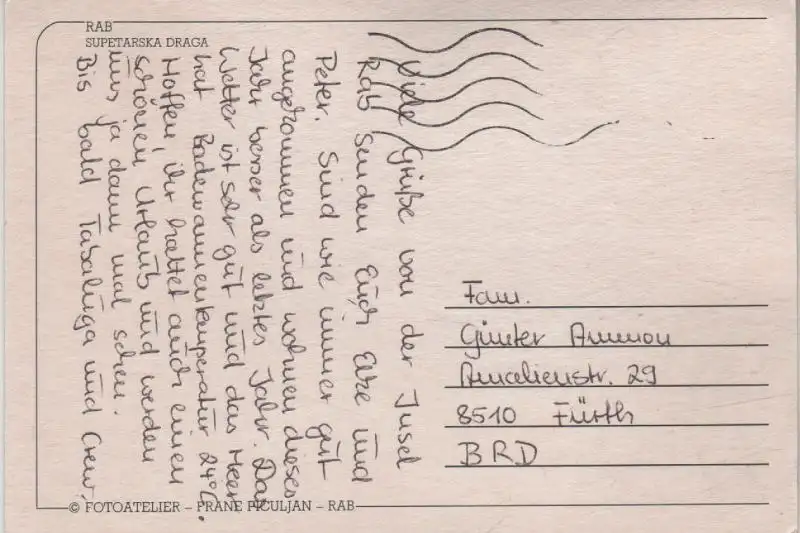 RAB
SUPETARSKA DRAGA
Viele Grüße von der Insel
Rab senden Euch Elke und
Peter. Sind wie immer gut
angekommen und wohnen dieses
Jahr besser als letztes Jahr. Das
Wetter ist sehr gut und das Meer
hat Badewannentemperatur 24°C.
Hoffen, ihr hattet auch einen
schönen Urlaub und werden
uns ja dann mal sehen.
Bis bald Tabaluga und Crew.
Fam.
Günter Ammon
Amalienstr. 29
8510 Fürth
BRD
© FOTOATELIER – PRANE PICULJAN – RAB